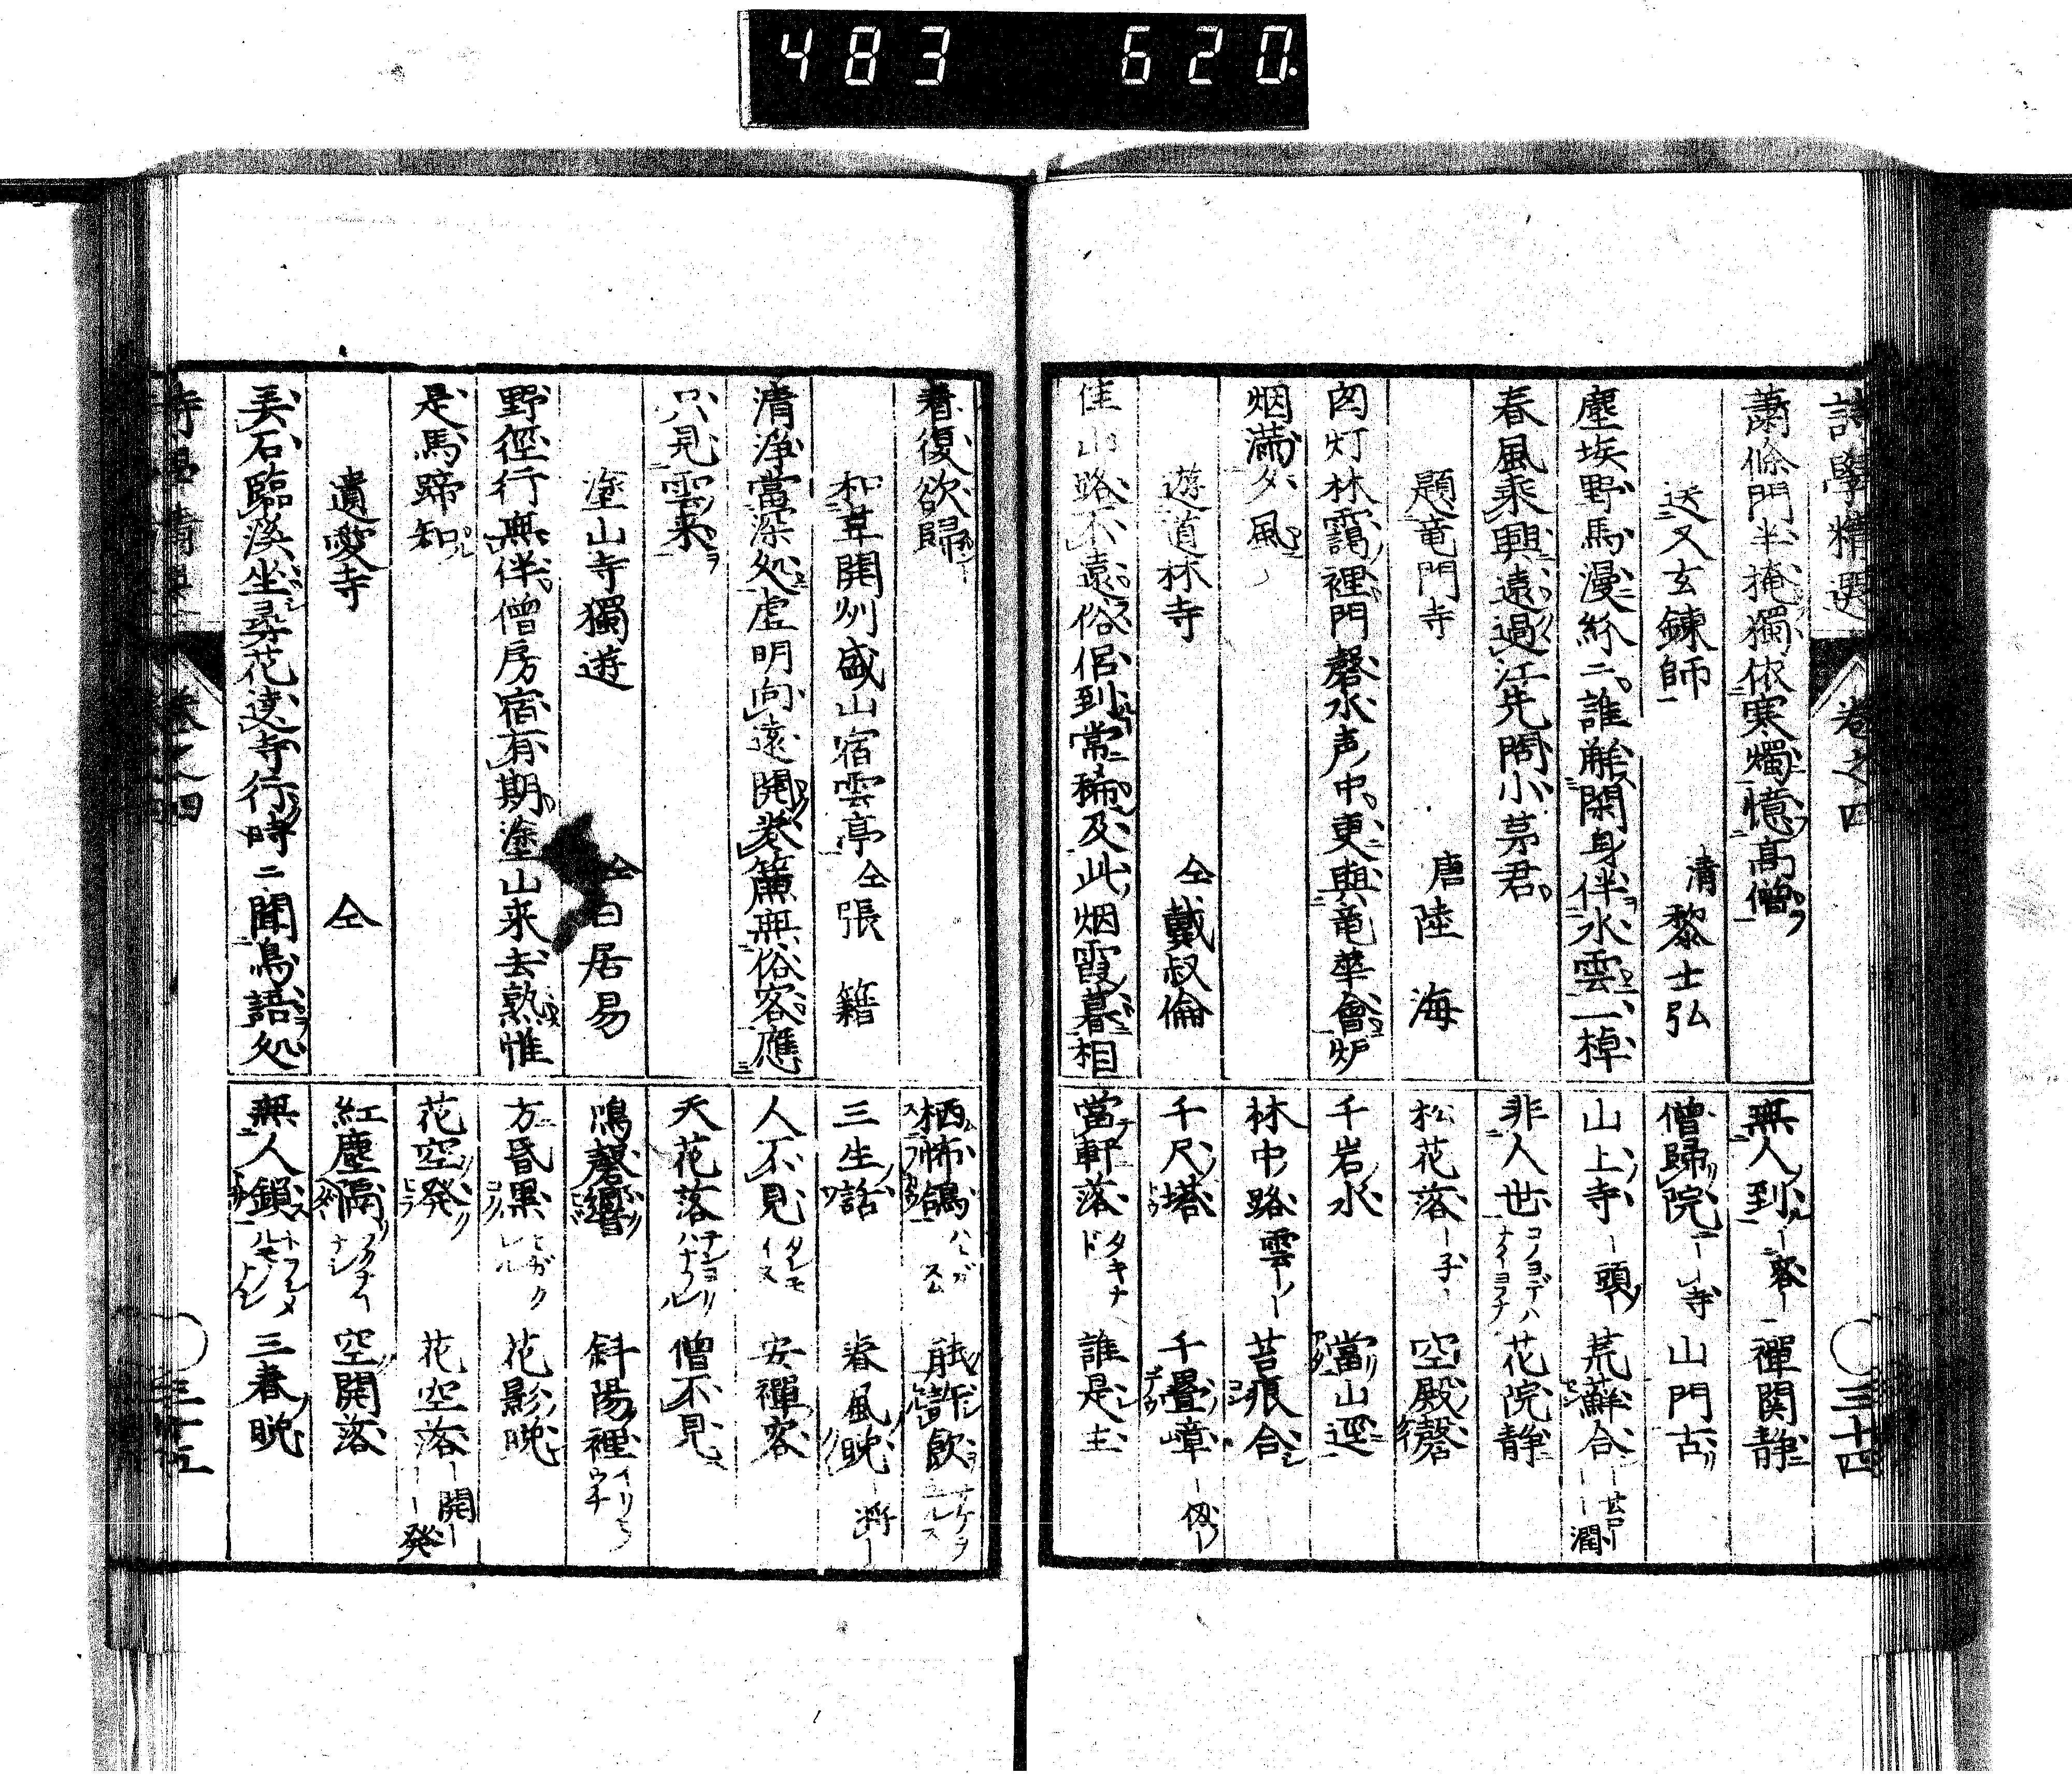 483 620.
詩學精選 卷之四 三十四
蕭條門半掩獨依寒燭憶高僧
無人到 ー客ー 禪関静
送又玄鍊師 清黎士弘
僧歸院 ー寺 山門古
塵埃野馬漫紛ニ誰能閑身伴水雲一棹
山上寺 ー頭ー 荒蘚合 ー苔ー ー潤
春風乘興遠過江先問小茅君
非人世 コノヨデハナイヨフナ 花院静
題竜門寺 唐陸海
松花落 ー子ー 空殿磬
窓灯林靄裡門磬水声中更與竜華會炉
千岩水 當山逕
烟満夕風
林中路 雲ー 苔痕合
遊道林寺 仝戴叔倫
千尺塔 千疊嶂 ー仭ー
佳山路不遠俗侶到常稀及此烟霞暮相
當軒落 タキナド 誰是主
看復欲歸
栖怖鴿 能許飲 サケヲユルス
和韋開州盛山宿雲亭 仝張籍
三生話 春風晩 ー將ー
清淨當深処虚明向遠開巻簾無俗客應
人不見 タレモイス 安禪客
只見雲来
天花落 テンヨリハナフル 僧不見
塗山寺獨遊 仝白居易
鳴磬響 斜陽裡 イリヒノウチ
野徑行無伴僧房宿有期塗山来去熟惟
方昏黒 花影晩
是馬蹄知
花空発 花空落 ー開ー ー発
遺愛寺 仝
紅塵隔 空開落
弄石臨溪坐尋花遶寺行時ニ聞鳥語処
無人鎖 三春晩
卷之四 三十五